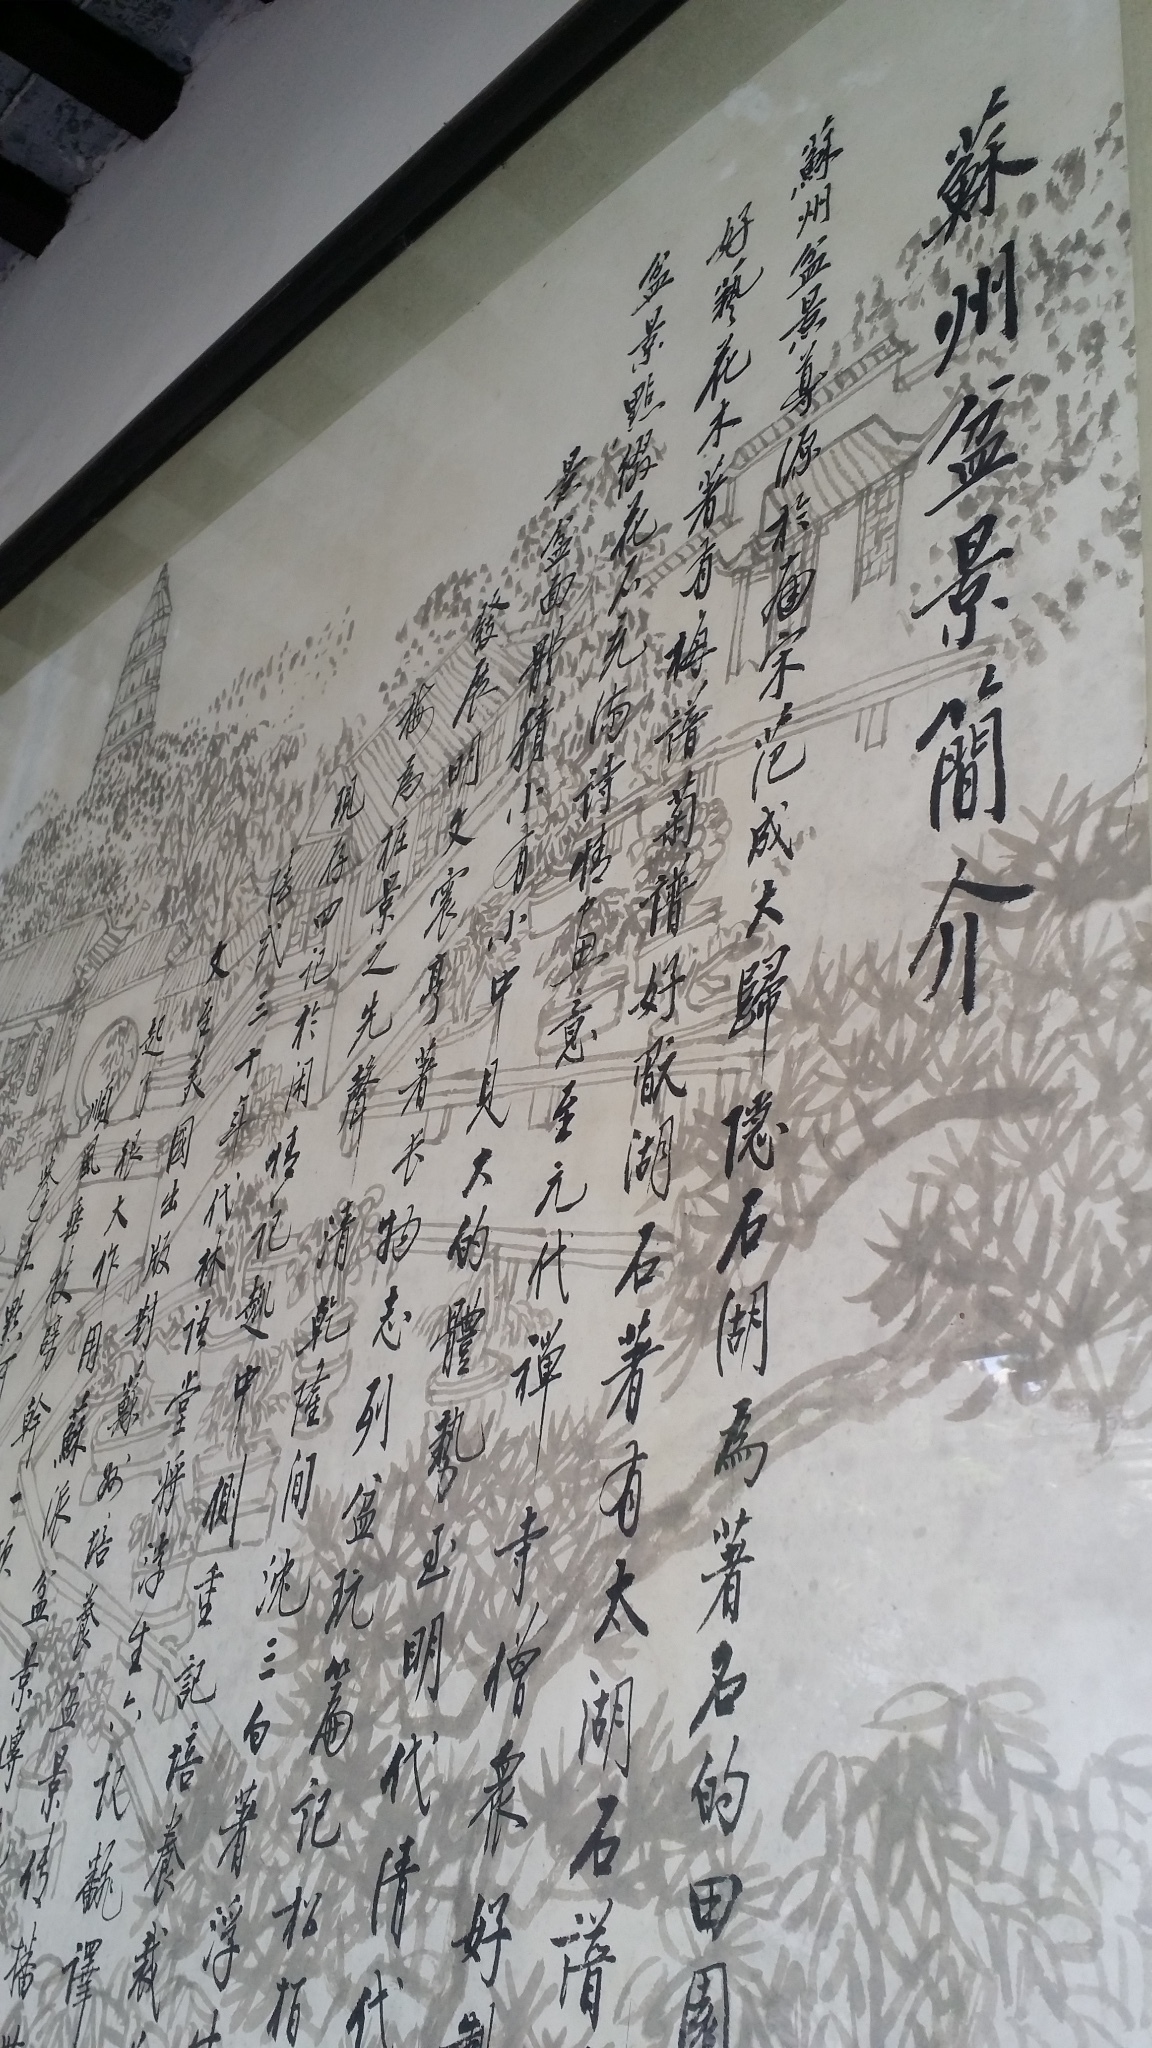 蘇州盆景簡介
蘇州盆景尋源於南宋范成大歸隱石湖為著名的田園
好藝花木著有梅譜菊譜好翫湖石著有太湖石譜
盆景點綴花石充滿詩情画意至元代禪寺僧衆好製
景盆面體積小有小中見大的體勢至明代清代
發展明文震亨著长物志列盆玩篇記松柏
梅為桩景之先聲清乾隆间沈三白著浮
現存四记於闲情记趣中侧重記培養栽
陆式三十年代林语堂将浮生六记翻譯
文至美國出版對蘇州培養盆景传播
起了很大作用蘇派盆景
順風垂枝劈幹一